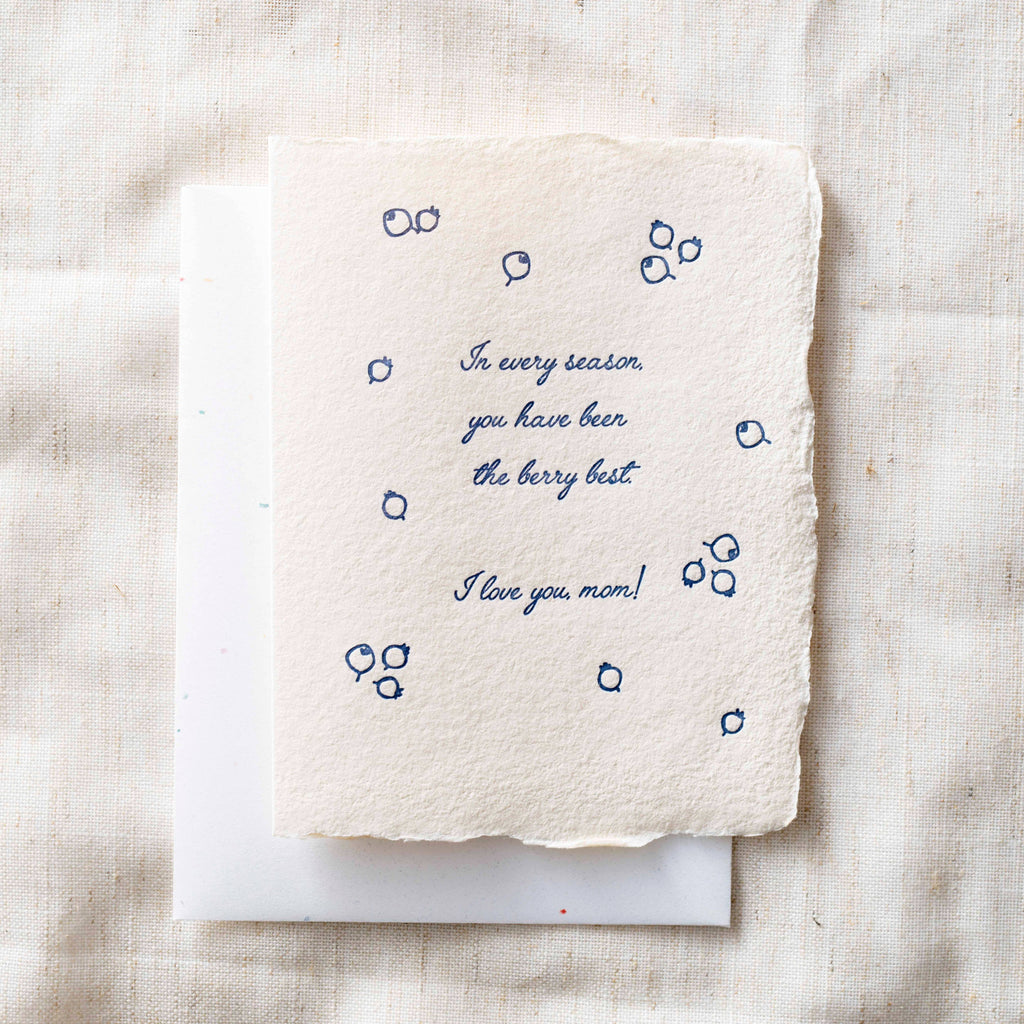 In every season,
you have been
the berry best.
I love you, mom!